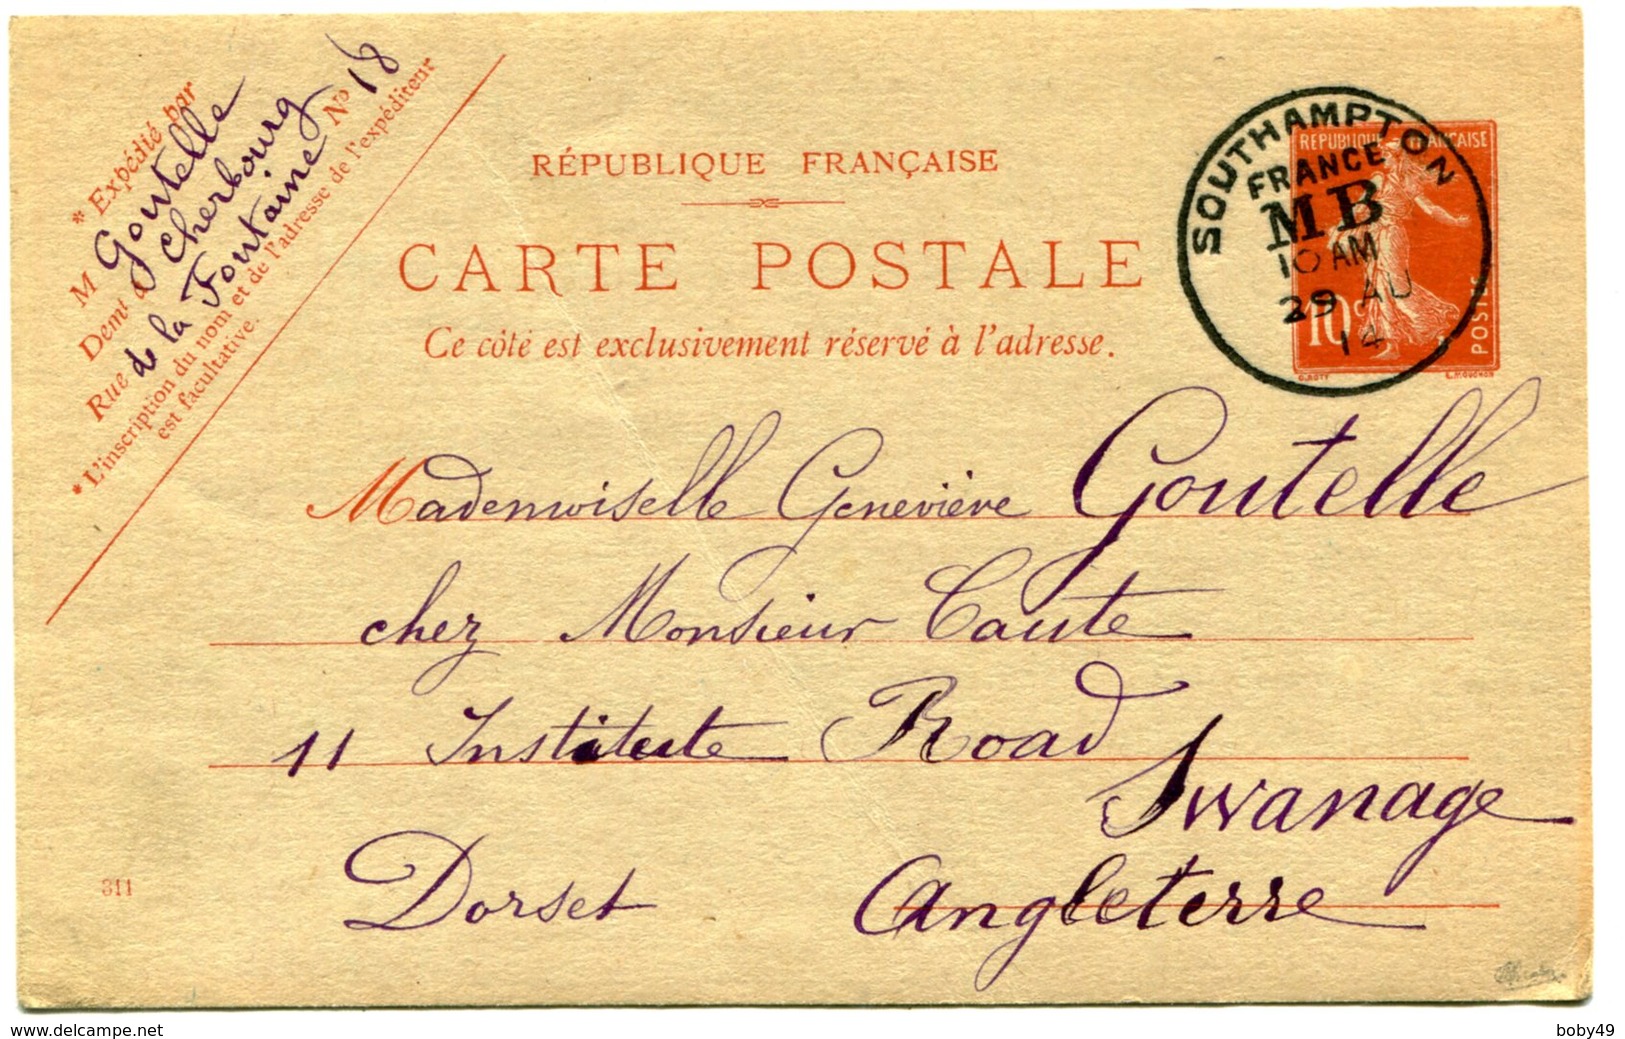 * Expédié par
M Goutelle
Demt à Cherbourg
Rue de la Fontaine No 18
* L'inscription du nom et de l'adresse de l'expéditeur
est facultative.
RÉPUBLIQUE FRANÇAISE
CARTE POSTALE
Ce côté est exclusivement réservé à l'adresse.
SOUTHAMPTON
FRANCE
MB
10 AM
29 AU
14
RÉPUBLIQUE FRANÇAISE
10 c
POSTES
O. ROTY
L. MOUCHON
Mademoiselle Geneviève Goutelle
chez Monsieur Caute
11 Institute Road
Swanage
Dorset Angleterre
311
www.delcampe.net
boby49